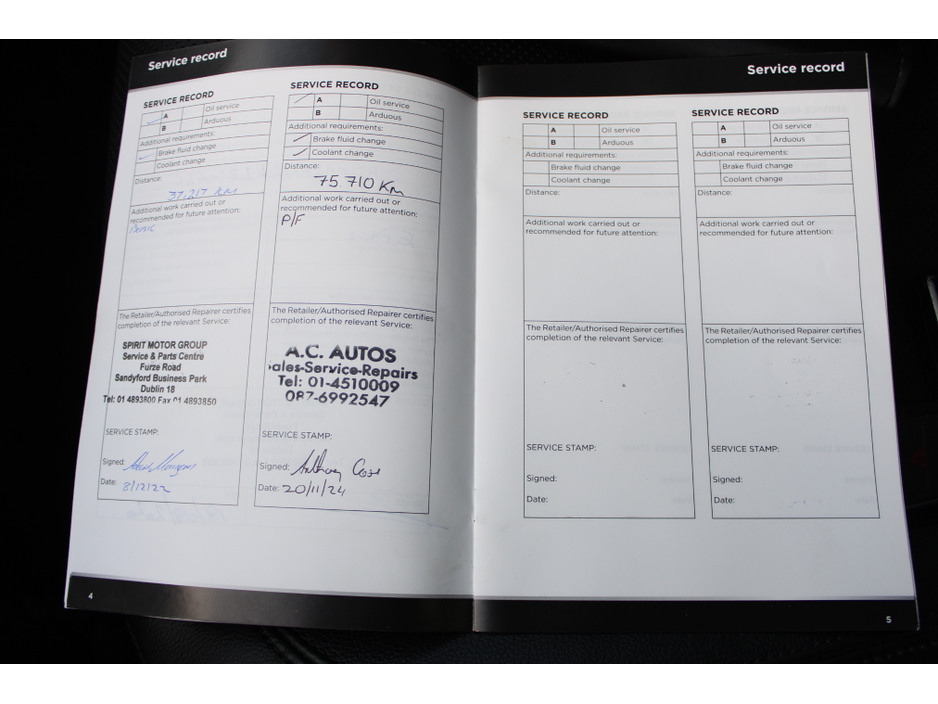 Service record
SERVICE RECORD
A Oil service
B Arduous
Additional requirements:
Brake fluid change
Coolant change
Distance:
37,217 KM
Additional work carried out or
recommended for future attention:
The Retailer/Authorised Repairer certifies
completion of the relevant Service:
SPIRIT MOTOR GROUP
Service & Parts Centre
Furze Road
Sandyford Business Park
Dublin 18
Tel: 01 4893800 Fax 01 4893850
SERVICE STAMP:
Signed:
Date: 8/12/22
SERVICE RECORD
A Oil service
B Arduous
Additional requirements:
Brake fluid change
Coolant change
Distance:
75 710 Km
Additional work carried out or
recommended for future attention:
P/F
The Retailer/Authorised Repairer certifies
completion of the relevant Service:
A.C. AUTOS
ales-Service-Repairs
Tel: 01-4510009
087-6992547
SERVICE STAMP:
Signed: Anthony
Date: 20/11/24
4
Service record
SERVICE RECORD
A Oil service
B Arduous
Additional requirements:
Brake fluid change
Coolant change
Distance:
Additional work carried out or
recommended for future attention:
The Retailer/Authorised Repairer certifies
completion of the relevant Service:
SERVICE STAMP:
Signed:
Date:
SERVICE RECORD
A Oil service
B Arduous
Additional requirements:
Brake fluid change
Coolant change
Distance:
Additional work carried out or
recommended for future attention:
The Retailer/Authorised Repairer certifies
completion of the relevant Service:
SERVICE STAMP:
Signed:
Date:
5